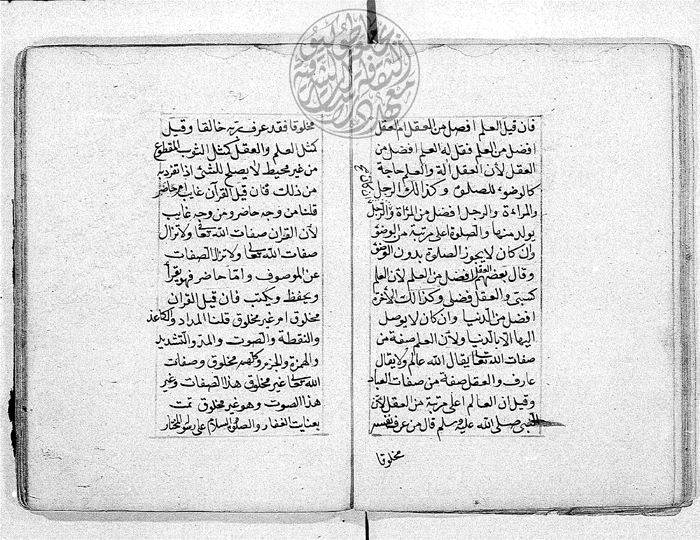 فان قيل العلم افضل من العقل ام العقل
افضل من العلم فقل له العلم افضل من
العقل لأن العقل آلة والعلم حاجة
كالوضوء للصلوة وكذا لك الرجل
والمراءة والرجل افضل من المراة والرجل
يولد منها والصلوة اعلى مرتبة من الوضؤ
وان كان لا يجوز الصلوة بدون الوضؤ
وقال بعضهم العقل افضل من العلم لأن العلم
كسبى والعقل فضلى وكذا لك الأخرة
افضل من الدنيا وان كان لا يوصل
اليها الا بالدنيا ولأن العلم صفة من
صفات الله تعالى يقال الله عالم ولا يقال
عارف والعقل صفة من صفات العباد
وقيل ان العالم اعلى مرتبة من العقل لأن
النبى صلى الله عليه وسلم قال من عرف نفسه
مخلوقا
مخلوقا فقد عرف ربه خالقا وقيل
كمثل العلم والعقل كمثل الثوب المقطوع
من غير محيط لا يصلح للشئ اذا تفرد به
من ذلك فان قيل القرآن غايب ام حاضر
قلنا من وجه حاضر ومن وجه غايب
لأن القران صفات الله تعالى ولا تزال
صفات الله تعالى ولا تزال الصفات
عن الموصوف واما حاضر فهو يقرأ
ويحفظ ويكتب فان قيل القران
مخلوق ام غير مخلوق قلنا المداد والكاغذ
والنقطة والصوت والمد والتشديد
والهمزة والجزم وكلهم مخلوق وصفات
الله تعالى غير مخلوق هذا الصفات وغير
هذا الصوت وهو غير مخلوق تمت
بعنايت الغفار والصلوة والسلام على رسوله المختار